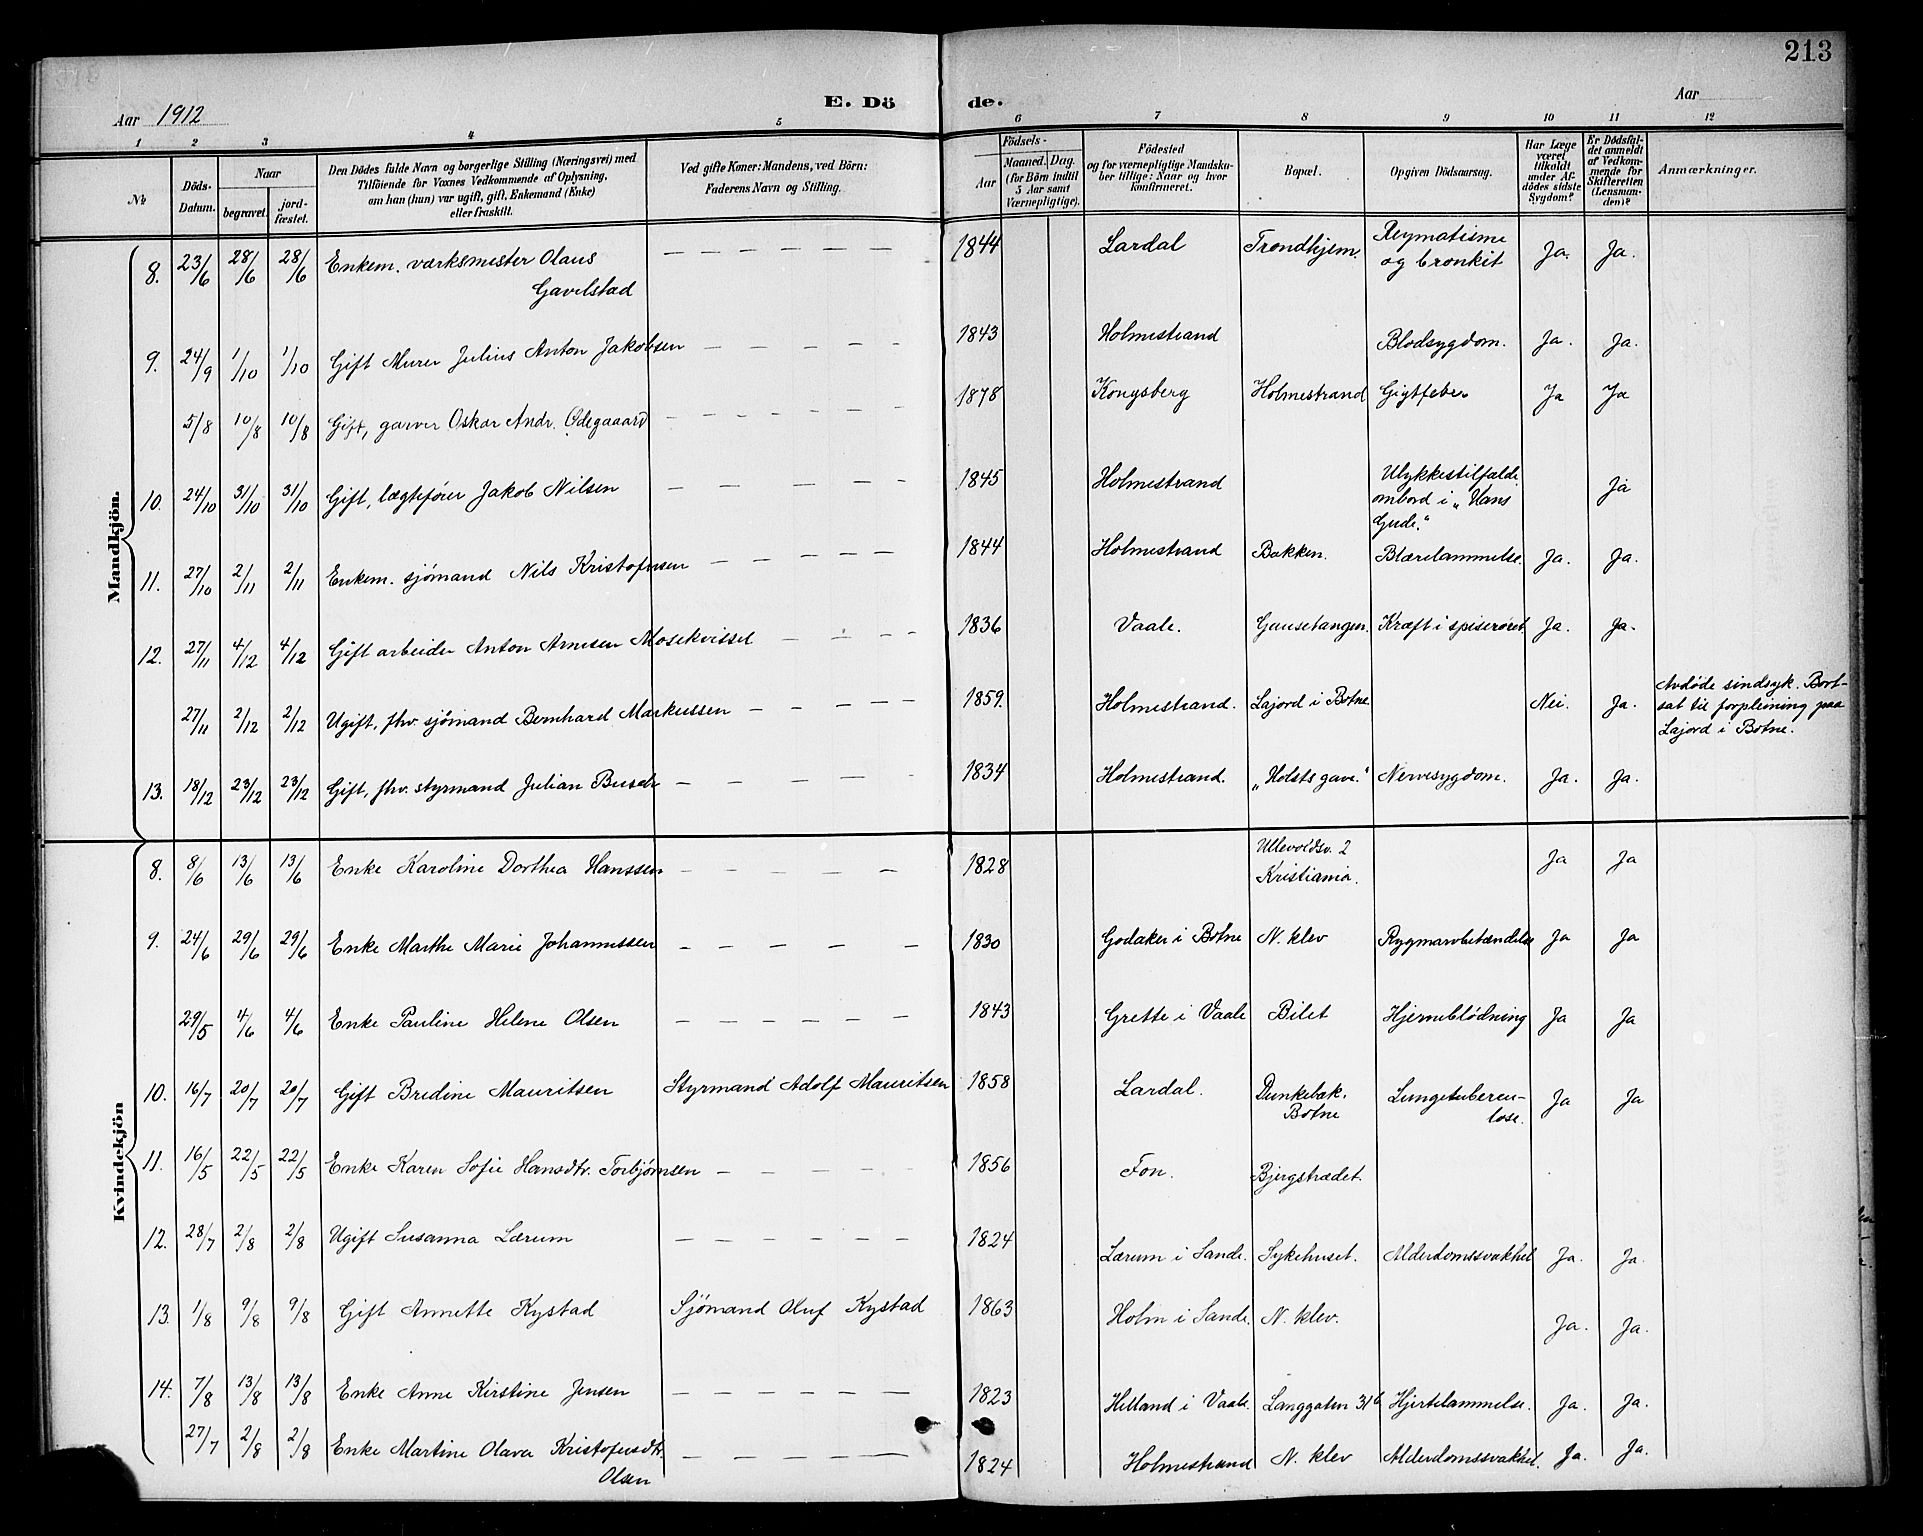 213
Aar 1912
E. Dö de.
Aar
1 2 3 4 5 6 7 8 9 10 11 12
№
Döds-Datum.
Naar
begravet.
jord-fæstet.
Den Dödes fulde Navn og borgerlige Stilling (Næringsvei) med
Tilföiende for Voxnes Vedkommende af Oplysning,
om han (hun) var ugift, gift, Enkemand (Enke)
eller fraskilt.
Ved gifte Koner: Mandens, ved Börn:
Faderens Navn og Stilling.
Födsels-
Aar
Maaned. Dag.
(for Börn indtil
5 Aar samt
Værnepligtige).
Födested
og for værnepligtige Mandska-
ber tillige: Naar og hvor
Konfirmeret.
Bopæl.
Opgiven Dödsaarsag.
Har Læge
været
tilkaldt
under Af-
dödes sidste
Sygdom?
Er Dödsfal-
det anmeldt
af Vedkom-
mende for
Skifteretten
(Lensman-
den)?
Anmærkninger.
Mandkjön.
8. 23/6 28/6 28/6 Enkem. værksmester Olaus Gavelstad — — — — — 1844 Lardal Trondhjem. Reymatisme og bronkit Ja. Ja.
9. 24/9 1/10 1/10 Gift Murer Julius Anton Jakobsen — — — — — 1843 Holmestrand Blodsygdom. Ja. Ja.
5/8 10/8 10/8 Gift, garver Oskar Andr. Ødegaaard — — — — — — 1878 Kongsberg Holmestrand Gigtfeber Ja Ja
10. 24/10 31/10 31/10 Gift, lægtefører Jakob Nilsen — — — — — — 1845 Holmestrand Ulykkestilfælde ombord i „Hans Gude." Ja
11. 27/10 2/11 2/11 Enkem. sjømand Nils Kristofersen — — — — — 1844 Holmestrand Bakken. Blærelammelse. Ja. Ja.
12. 27/11 4/12 4/12 Gift arbeider Anton Arnesen Mosekvisset — — — — 1836 Vaale. Gausetangen. Kræft i spiserøret. Ja. Ja.
27/11 2/12 2/12 Ugift, fhv. sjømand Bernhard Markussen — — — — — 1859. Holmestrand. Lajord i Botne. Nei. Ja. Avdøde sindsyk. Bort-
sat til forpleining paa
Lajord i Botne.
13. 18/12 23/12 23/12 Gift, fhv. styrmand Julian Busch — — — — — 1834 Holmestrand. „Holsts gave." Nervesygdom. Ja. Ja.
Kvindekjön
8. 8/6 13/6 13/6 Enke Karoline Dorthea Hanssen — — — — — 1828 Ullevoldsv. 2 Kristiania. Ja Ja
9. 24/6 29/6 29/6 Enke Marthe Marie Johannessen — — — — — 1830 Godaker i Botne N. klev Rygmarvbetændelse Ja Ja
29/5 4/6 4/6 Enke Pauline Helene Olsen — — — — — — 1843 Grette i Vaale Bilet Hjerneblødning Ja Ja
10. 16/7 20/7 20/7 Gift Bredine Mauritsen Styrmand Adolf Mauritsen 1858 Lardal. Dunkebæk. Botne Lungetuberku-
lose. Ja Ja
11. 16/5 22/5 22/5 Enke Karen Sofie Hansdtr. Torbjørnsen — — — — — 1856 Fon. Bjergstrædet.
12. 28/7 2/8 2/8 Ugift Susanna Lærum — — — — — — 1824 Lærum i Sande. Sykehuset. Alderdomssvakhet Ja. Ja.
13. 1/8 9/8 9/8 Gift Annette Kystad Sjømand Oluf Kystad 1863 Holm i Sande. N. klev. Ja. Ja.
14. 7/8 13/8 13/8 Enke Anne Kirstine Jensen — — — — — — 1823 Helland i Vaale. Langgaten 31b Hjertelammelse. Ja. Ja.
27/7 2/8 2/8 Enke Martine Olava Kristofersdtr. Olsen — — — — — 1824 Holmestrand N. klev Alderdomssvakhet. Ja. Ja.